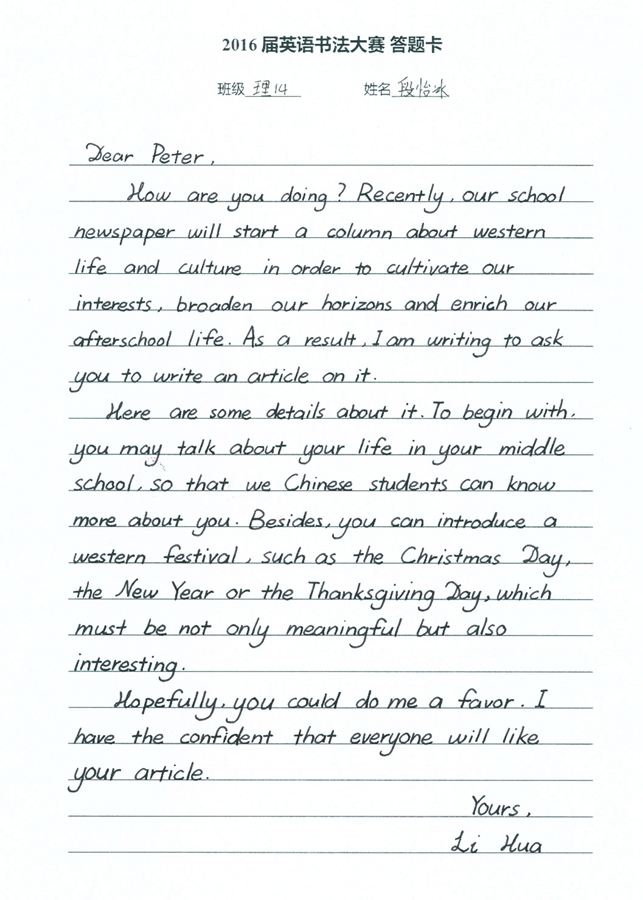 2016 届英语书法大赛 答题卡
班级 理14 姓名 段怡冰
Dear Peter,
How are you doing? Recently, our school
newspaper will start a column about western
life and culture in order to cultivate our
interests, broaden our horizons and enrich our
afterschool life. As a result, I am writing to ask
you to write an article on it.
Here are some details about it. To begin with,
you may talk about your life in your middle
school, so that we Chinese students can know
more about you. Besides, you can introduce a
western festival, such as the Christmas Day,
the New Year or the Thanksgiving Day, which
must be not only meaningful but also
interesting.
Hopefully, you could do me a favor. I
have the confident that everyone will like
your article.
Yours,
Li Hua